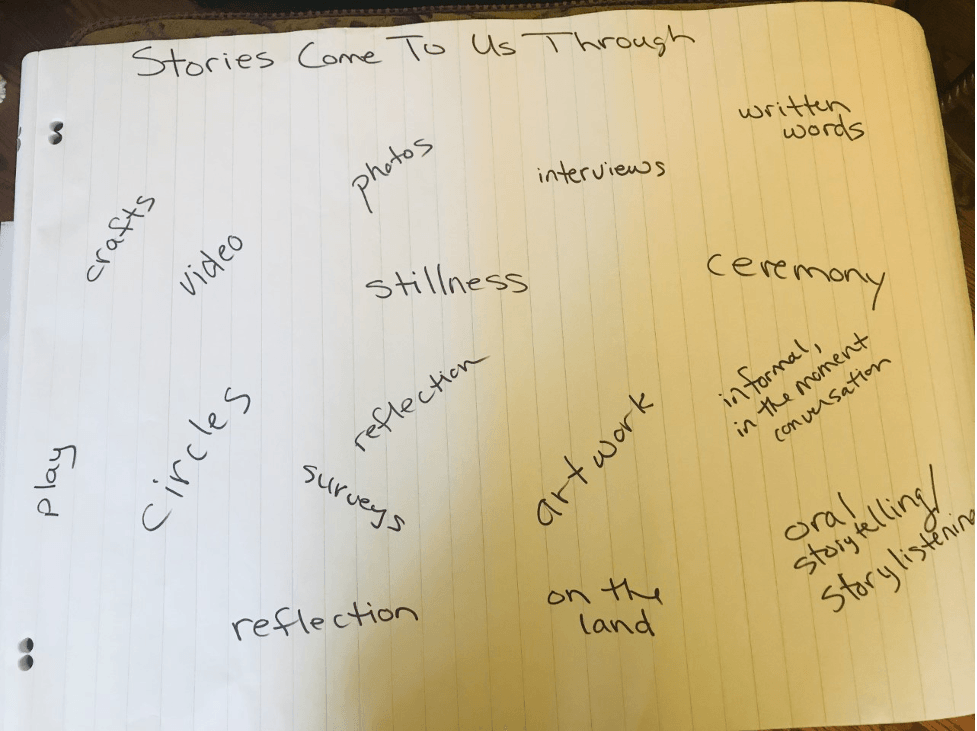 Stories Come To Us Through
written
words
photos
interviews
crafts
video
stillness
ceremony
informal,
in the moment
conversation
reflection
play
circles
surveys
artwork
oral
storytelling/
story listening
on the
land
reflection